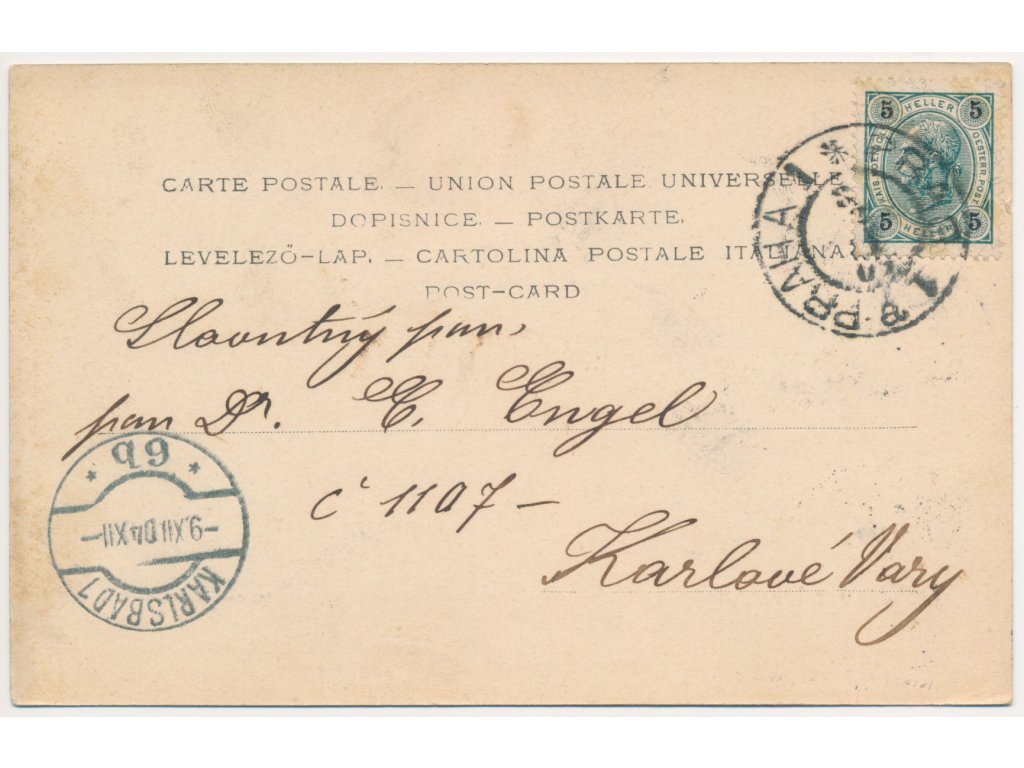 CARTE POSTALE. — UNION POSTALE UNIVERSELLE
DOPISNICE. — POSTKARTE.
LEVELEZŐ-LAP. — CARTOLINA POSTALE ITALIANA
POST-CARD
5 HELLER 5
OESTERR. POST
5 HELLER 5
PRAHA 1
Slovutný pan,
pan Dr. E. Engel
č 1107 —
Karlové Vary
* 6b *
-9.XII.04 XII-
KARLSBAD 1